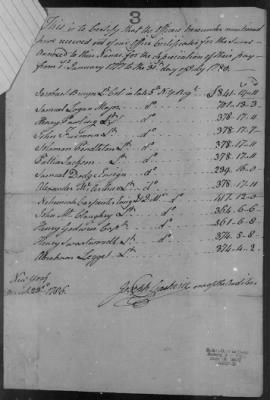 3
This is to Certify that the Officers hereunder mentioned
have received out of our Office Certificates for the Sums
Annexed to their Names, for the depreciation of their pay
from 1st January 1777 to the 31st day of July 1780.
Jacobus Bruyn Lt. Col. in late 5th N.Y. Regt.
Samuel Logan Major do. 701..13..3
Henry Pawling Lt. do. 378..17..11
John F. do. 378..17..7
Solomon Pendleton Lt. do. 378..17..11
Patten Jackson Lt. do. 378..17..11
Samuel Dodge Ensign do. 239..16..0
Alexander McArthur Lt. do. 378..17..11
Nehemiah Carpenter Ensign & Q.M. do. 417..12..0
John McClaughry Lt. do. 364..6..6
Henry Godwin Capt. do. 561..6..8
Henry Swartwoudt do. 374..5..8
Abraham Legget Lt. do. 374..4..2
New York
1786.